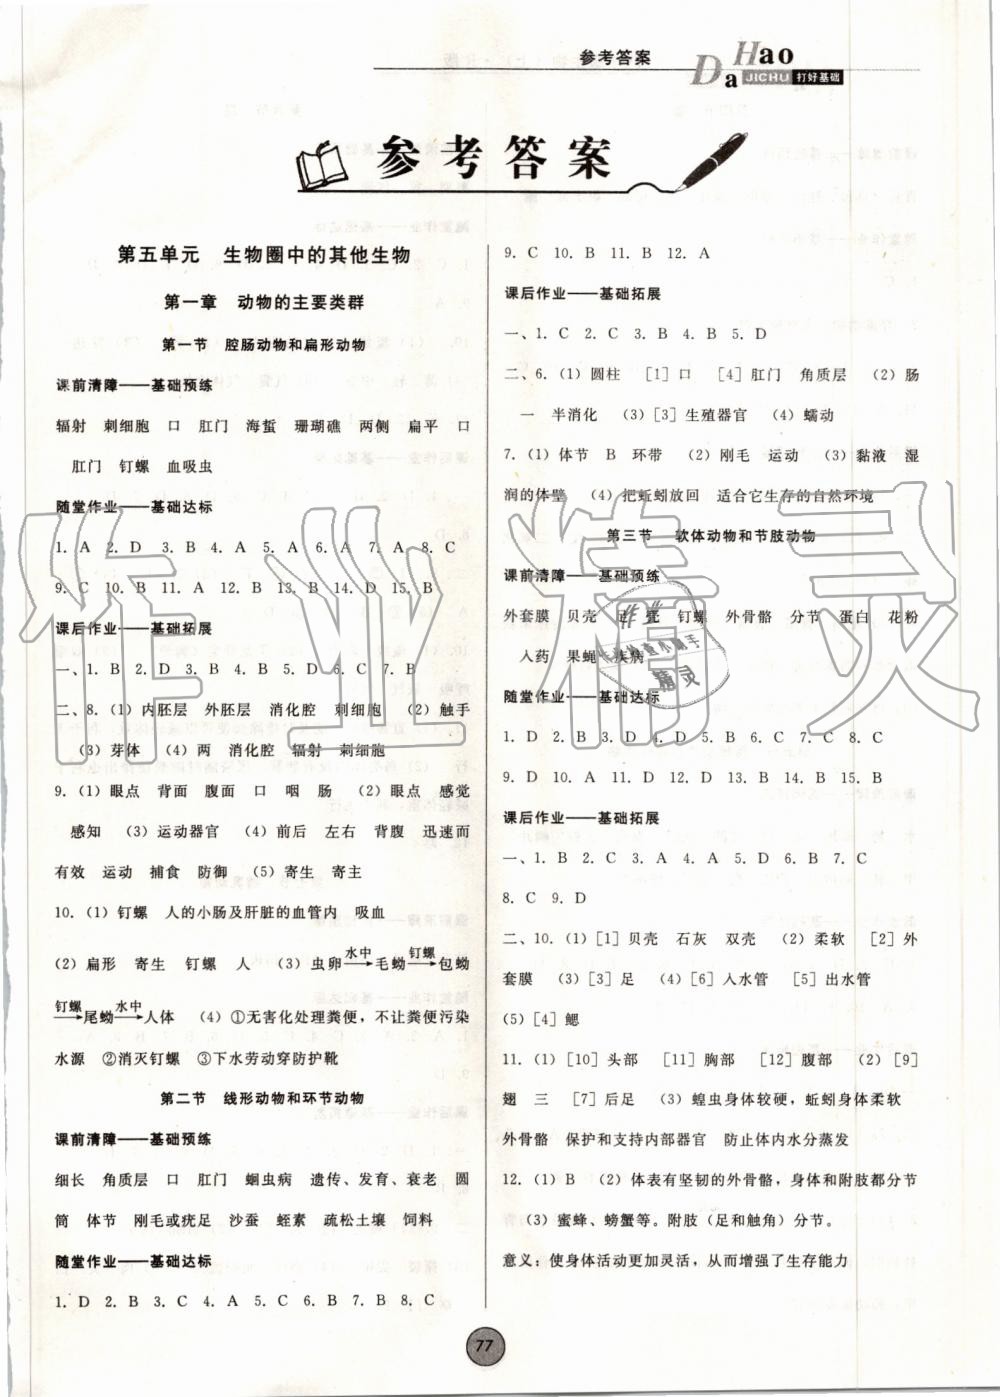 参考答案
Da Hao
JICHU 打好基础
参考答案
第五单元 生物圈中的其他生物
第一章 动物的主要类群
第一节 腔肠动物和扁形动物
课前清障——基础预练
辐射 刺细胞 口 肛门 海蜇 珊瑚礁 两侧 扁平 口
肛门 钉螺 血吸虫
随堂作业——基础达标
1. A 2. D 3. B 4. A 5. A 6. A 7. A 8. C
9. C 10. B 11. A 12. B 13. B 14. D 15. B
课后作业——基础拓展
一、1. B 2. D 3. B 4. B 5. D 6. C 7. B
二、8. (1) 内胚层 外胚层 消化腔 刺细胞 (2) 触手
(3) 芽体 (4) 两 消化腔 辐射 刺细胞
9. (1) 眼点 背面 腹面 口 咽 肠 (2) 眼点 感觉
感知 (3) 运动器官 (4) 前后 左右 背腹 迅速而
有效 运动 捕食 防御 (5) 寄生 寄主
10. (1) 钉螺 人的小肠及肝脏的血管内 吸血
(2) 扁形 寄生 钉螺 人 (3) 虫卵 水中→ 毛蚴 钉螺→ 包蚴
钉螺→ 尾蚴 水中→ 人体 (4) ①无害化处理粪便，不让粪便污染
水源 ②消灭钉螺 ③下水劳动穿防护靴
第二节 线形动物和环节动物
课前清障——基础预练
细长 角质层 口 肛门 蛔虫病 遗传、发育、衰老 圆
筒 体节 刚毛或疣足 沙蚕 蛭素 疏松土壤 饲料
随堂作业——基础达标
1. D 2. B 3. C 4. A 5. C 6. B 7. B 8. C
9. C 10. B 11. B 12. A
课后作业——基础拓展
一、1. C 2. C 3. B 4. B 5. D
二、6. (1) 圆柱 [1] 口 [4] 肛门 角质层 (2) 肠
一 半消化 (3) [3] 生殖器官 (4) 蠕动
7. (1) 体节 B 环带 (2) 刚毛 运动 (3) 黏液 湿
润的体壁 (4) 把蚯蚓放回 适合它生存的自然环境
第三节 软体动物和节肢动物
课前清障——基础预练
外套膜 贝壳 足 壳 钉螺 外骨骼 分节 蛋白 花粉
入药 果蝇 疾病
随堂作业——基础达标
1. D 2. B 3. D 4. D 5. B 6. C 7. C 8. C
9. D 10. A 11. D 12. D 13. B 14. B 15. B
课后作业——基础拓展
一、1. B 2. C 3. C 4. A 5. D 6. B 7. C
8. C 9. D
二、10. (1) [1] 贝壳 石灰 双壳 (2) 柔软 [2] 外
套膜 (3) [3] 足 (4) [6] 入水管 [5] 出水管
(5) [4] 鳃
11. (1) [10] 头部 [11] 胸部 [12] 腹部 (2) [9]
翅 三 [7] 后足 (3) 蝗虫身体较硬，蚯蚓身体柔软
外骨骼 保护和支持内部器官 防止体内水分蒸发
12. (1) B (2) 体表有坚韧的外骨骼，身体和附肢都分节
(3) 蜜蜂、螃蟹等。附肢（足和触角）分节。
意义：使身体活动更加灵活，从而增强了生存能力
77
作业精灵